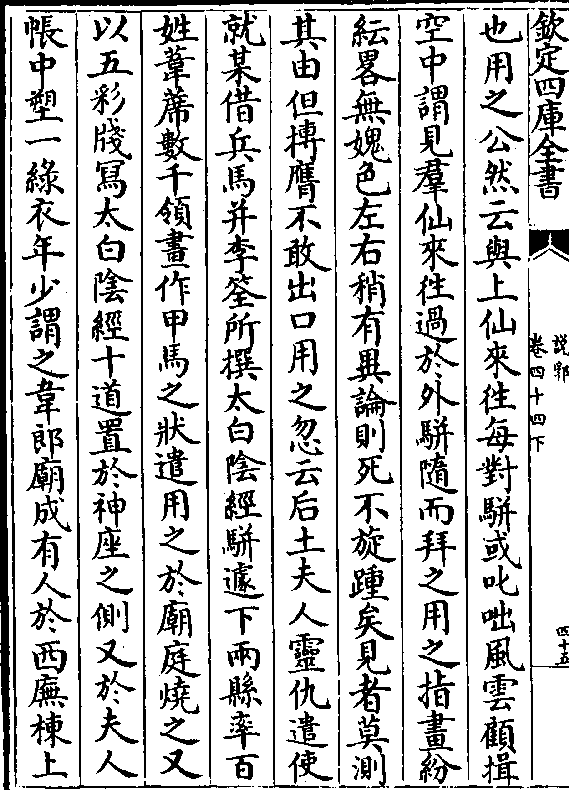 欽定四庫全書
說郛
卷四十四下
四十五
也用之公然云與上仙來往每對駢或叱咄風雲顧揖
空中謂見羣仙來往過於外駢隨而拜之用之指畫紛
紜畧無媿色左右稍有異論則死不旋踵矣見者莫測
其由但摶膺不敢出口用之忽云后土夫人靈仇遣使
就某借兵馬并李筌所撰太白陰經駢遽下兩縣率百
姓葦蓆數千領畫作甲馬之狀遣用之於廟庭燒之又
以五彩牋寫太白陰經十道置於神座之側又於夫人
帳中塑一綠衣年少謂之韋郎廟成有人於西廡棟上